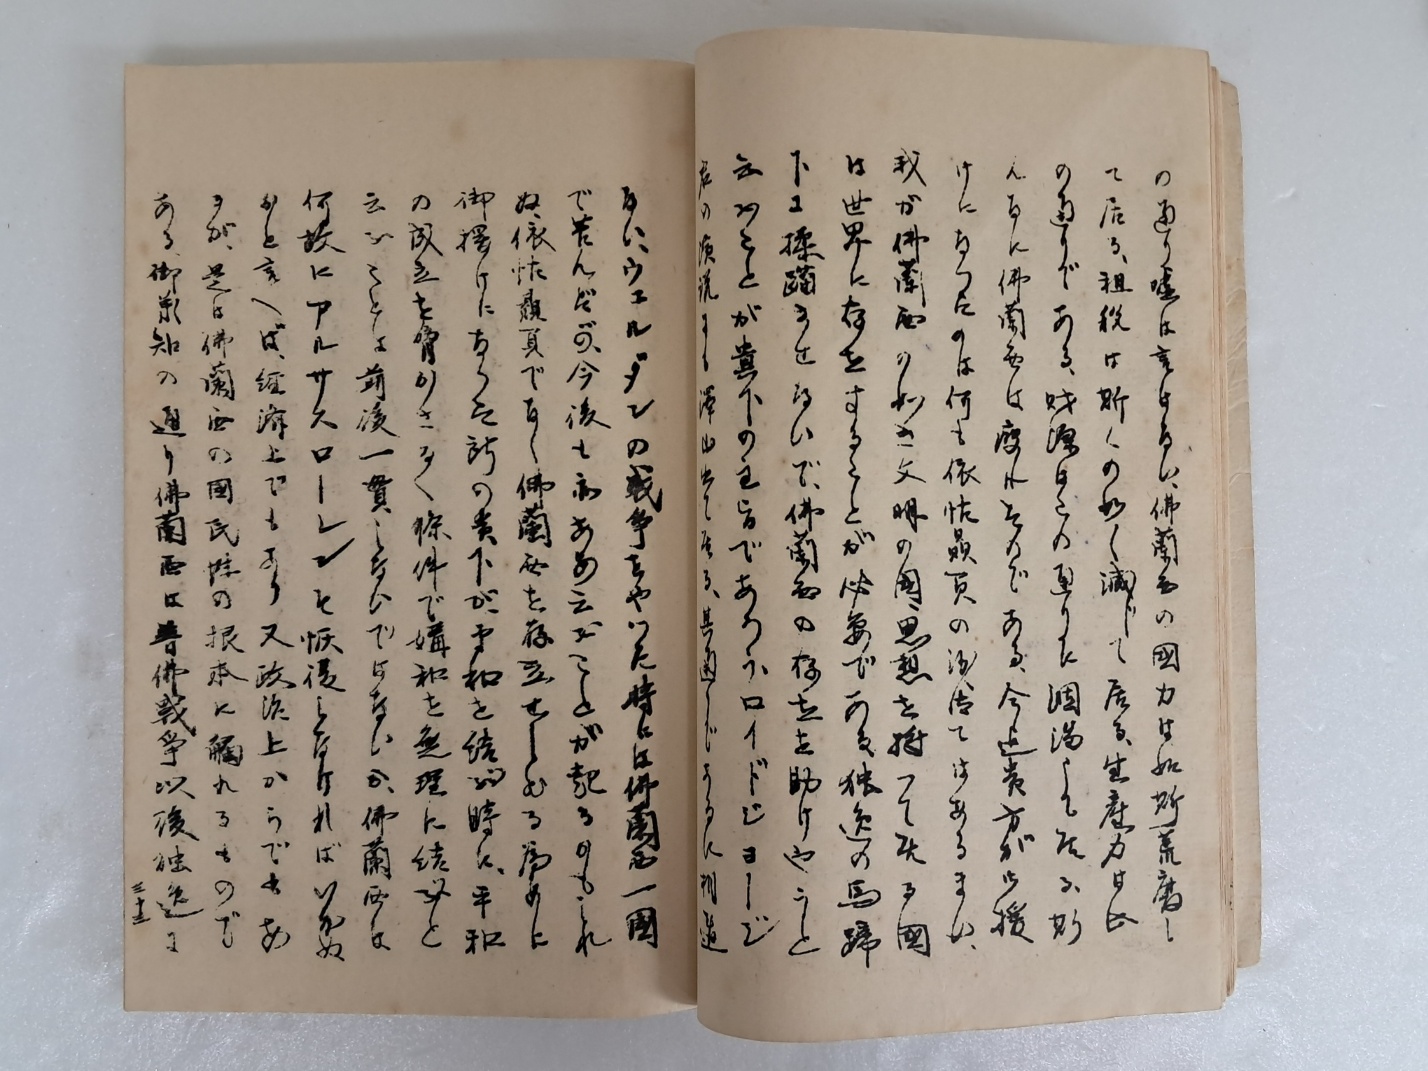 の通り嘘は言はない、佛蘭西の國力は如斯荒廢し
て居る、租税は斯くの如く減じて居る、生産力は此
の通りである、財源はこの通りに涸渇して居る、斯
んなに佛蘭西は疲れたのである、今迄貴方が御援
けになつたのは何も依怙贔負の沙汰ではあるまい、
我が佛蘭西の如き文明の國、思想を持つて居る國
は世界に存在することが必要である、独逸の馬蹄
下に蹂躪させないで、佛蘭西の存在を助けやうと
云ふことが貴下の主旨であらう、ロイドジヨージ
君の演説にも澤山出て居る、其通りであるに相違
ない、ウエルダンの戦争をやつた時には佛蘭西一國
で苦んだが、今後も亦あゝ云ふことが起るかもしれ
ぬ、依怙贔負でなく佛蘭西を存立せしむる為めに
御援けになつた所の貴下が、平和を結ぶ時に、平和
の成立を脅かさるゝ條件で媾和を無理に結べと
云ふことは前後一貫しないではないか、佛蘭西は
何故にアルサスローレンを恢復しなければいかぬ
かと言へば、経済上でもあり又政治上からでもあ
るが、是は佛蘭西の國民性の根本に觸れるもので
ある、御承知の通り佛蘭西は普佛戦争以後独逸に
三十三